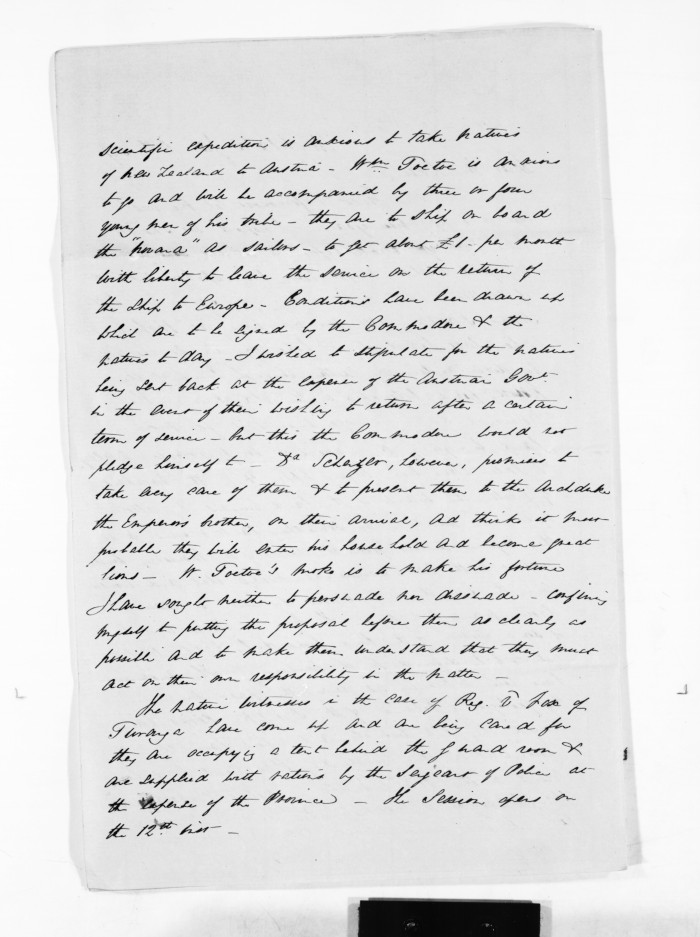 scientific expedition is anxious to take natives
of New Zealand to Austria - Wm Toetoe is anxious
to go and will be accompanied by three or four
young men of his tribe - they are to ship on board
the "Novara" as sailors - to get about £1 - per month
with liberty to leave the service on the return of
the ship to Europe - Conditions have been drawn up
which are to be signed by the Commodore & the
natives to day - I wished to stipulate for the natives
being sent back at the expense of the Austrian Govt.
in the event of their wishing to return after a certain
term of service - but this the Commodore would not
pledge himself to - Dr Scherzer, however, promises to
take every care of them & to present them to the Archduke
the Emperor's brother, on their arrival, and thinks it most
probable they will enter his household and become great
lions - W. Toetoe's moko is to make his fortune
I have sought neither to persuade nor dissuade - confining
myself to putting the proposal before them as clearly as
possible and to make them understand that they must
act on their own responsibility in the matter -
The native witnesses in the case of Reg. v. Fox of
Turanga have come up and are being cared for
they are occupying a tent behind the guard room &
are supplied with rations by the Sergeant of Police at
the expense of the Province - The Session opens on
the 12th inst -